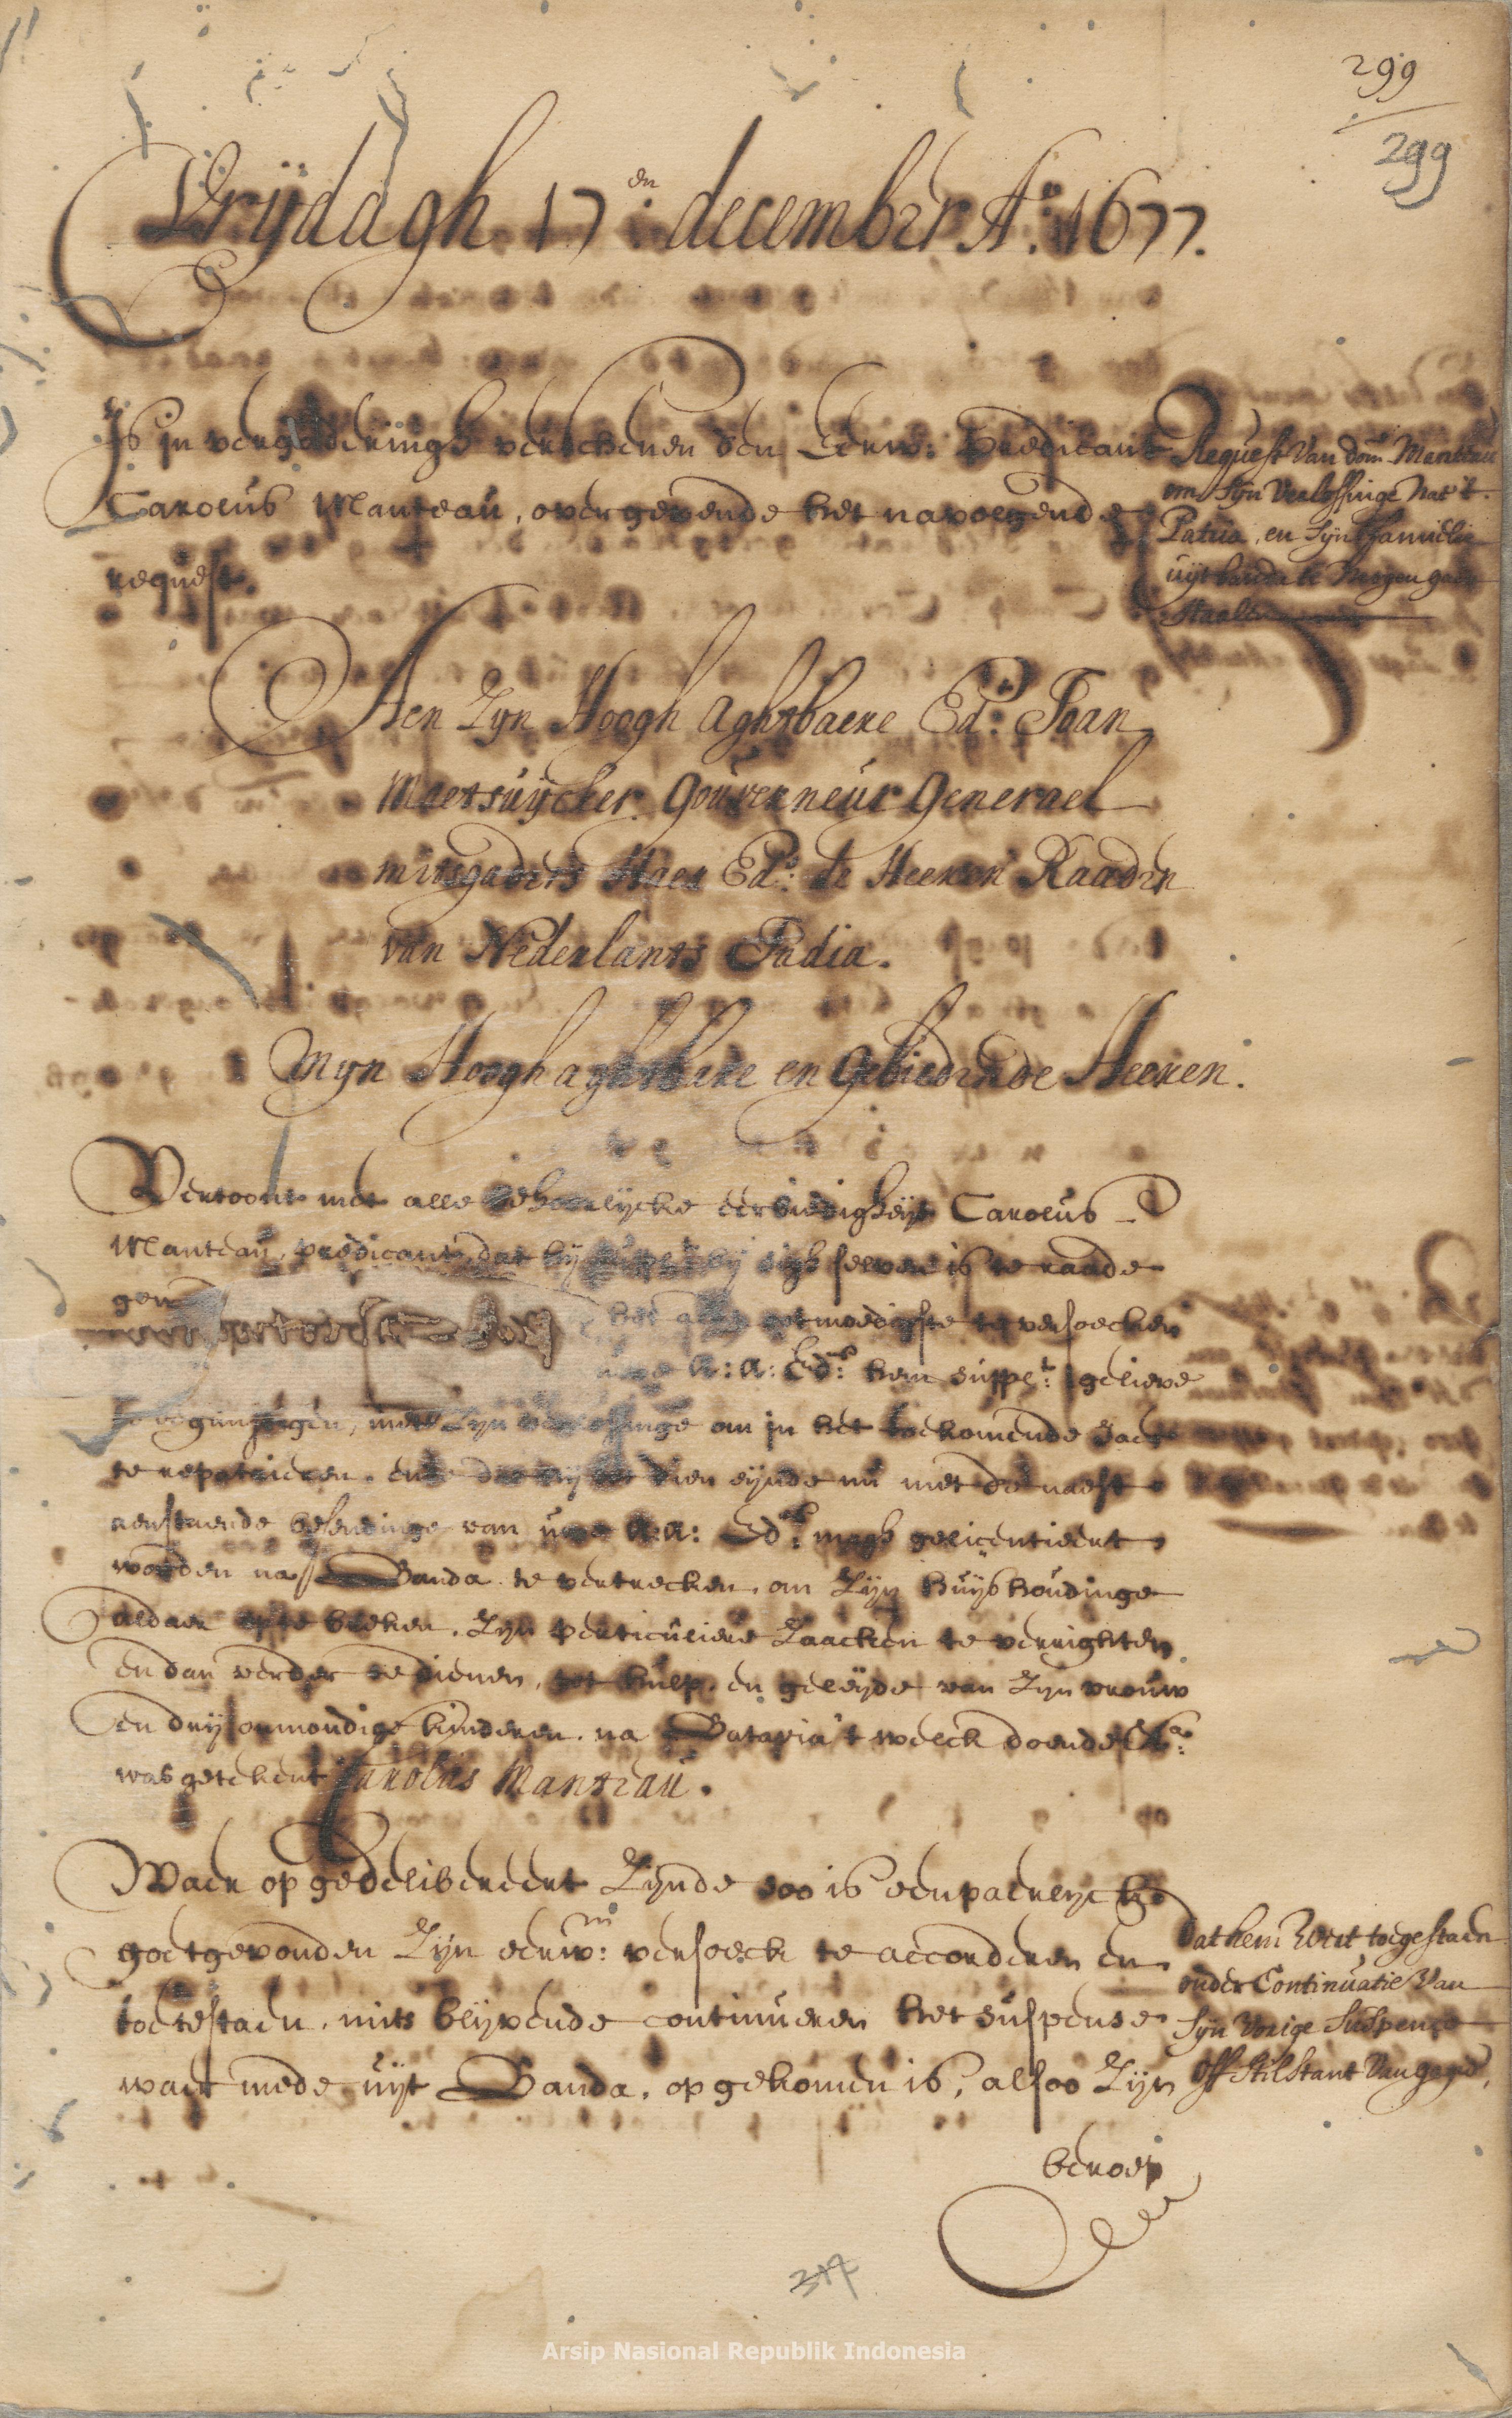 299
299
Vrijdagh 17 en december Ao. 1677.
Is in vergaderingh verschenen den Eerw: Predicant
Carolus Manteau, overgevende het navolgende
request.
Request van dom. Manteau
om sijn verlossinge nae 't
Patria, en sijn familie
uijt banda te mogen gaen
haelen
Aen Zyn Hoogh Aghtbaere Ed: Joan
Maetsuijcker Gouverneur Generael
mitsgaders Haer Eds: de Heeren Raaden
van Nederlants India.
Myn Hooghaghtbare en Gebiedende Heeren.
Vertoont met alle behoorlijcke eerbiedigheijt Carolus
Manteau, predicant, dat hij bij sigh selven is te raade
het ootmoedighste te versoecken
uwe h: a: Eds: hem supplt: gelieve
te begunstigen, met Zijn verlossinge om in het toekomende Jaer
te repatrieren, ende dat hij ten dien eijnde nu met de naest
aenstaende besendinge van uwe h: a: Eds: magh gelicentieert
worden na Banda te vertrecken, om Zijn huijshoudinge
aldaer op te breken, Zijn perticuliere Zaacken te verrighten
en dan verder te dienen, tot hulp, en geleijde van Zijn vrouw
en drij onmondige kinderen, na Batavia 't welck doende &a:
was getekent Carolus Manteau.
Waer op gedelibereert Zijnde soo is eenpaerlijck
goetgevonden Zijn eerw: versoeck te accorderen en
toetestaen, mits blijvende continueren het suspense
waer mede uijt Banda, opgekomen is, alsoo Zijn
Dat hem wert toegestaen
onder Continuatie van
sijn vorige suspence
off stilstant van gagie,
beroep
Arsip Nasional Republik Indonesia